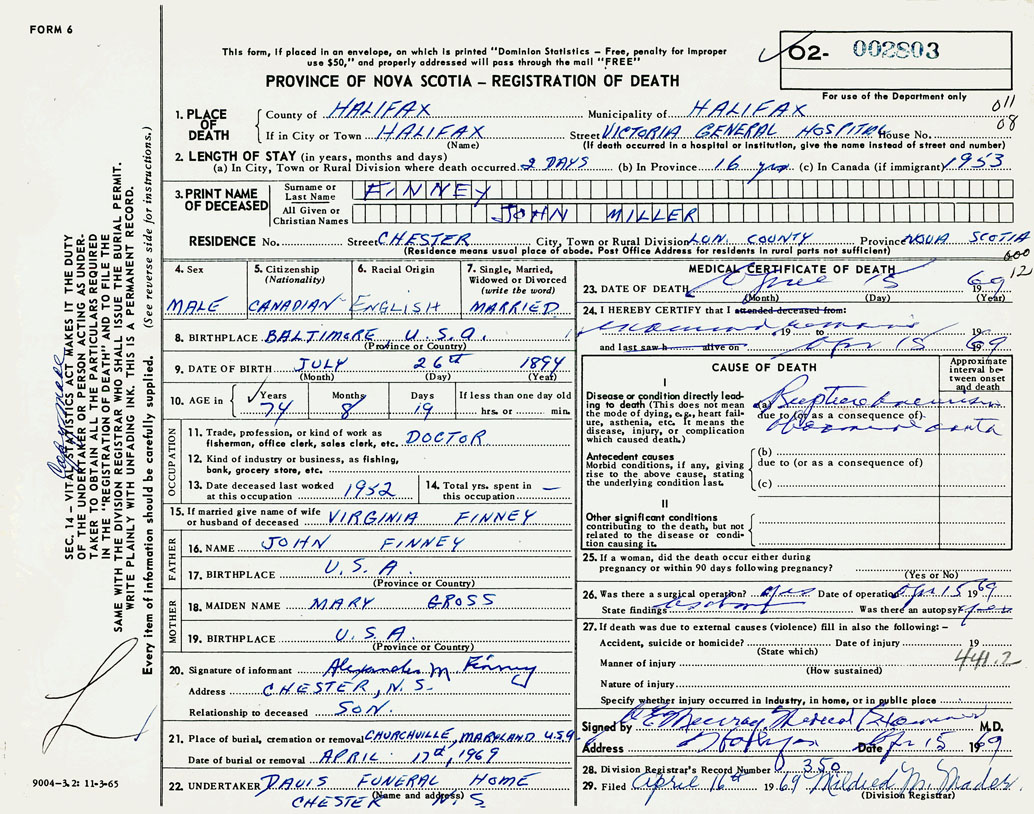 FORM 6
This form, if placed in an envelope, on which is printed "Dominion Statistics – Free, penalty for improper
use $50," and properly addressed will pass through the mail "FREE"
O2- 002803
PROVINCE OF NOVA SCOTIA – REGISTRATION OF DEATH
For use of the Department only
011
08
1. PLACE OF DEATH
County of HALIFAX Municipality of HALIFAX
If in City or Town HALIFAX Street VICTORIA GENERAL HOSPITAL House No.
(Name) (If death occurred in a hospital or institution, give the name instead of street and number)
2. LENGTH OF STAY (in years, months and days)
(a) In City, Town or Rural Division where death occurred 2 DAYS (b) In Province 16 yrs (c) In Canada (if immigrant) 1953
3. PRINT NAME OF DECEASED
Surname or Last Name FINNEY
All Given or Christian Names JOHN MILLER
RESIDENCE No. Street CHESTER City, Town or Rural Division LUN. COUNTY Province NOVA SCOTIA
(Residence means usual place of abode. Post Office Address for residents in rural parts not sufficient)
600
12
4. Sex
MALE
5. Citizenship (Nationality)
CANADIAN
6. Racial Origin
ENGLISH
7. Single, Married, Widowed or Divorced (write the word)
MARRIED
8. BIRTHPLACE BALTIMORE U.S.A.
(Province or Country)
9. DATE OF BIRTH JULY 26th 1894
(Month) (Day) (Year)
10. AGE in Years Months Days If less than one day old
74 8 19 hrs. or min.
OCCUPATION
11. Trade, profession, or kind of work as
fisherman, office clerk, sales clerk, etc. DOCTOR
12. Kind of industry or business, as fishing,
bank, grocery store, etc.
13. Date deceased last worked
at this occupation 1952
14. Total yrs. spent in
this occupation —
15. If married give name of wife
or husband of deceased VIRGINIA FINNEY
FATHER
16. NAME JOHN FINNEY
17. BIRTHPLACE U.S.A.
(Province or Country)
MOTHER
18. MAIDEN NAME MARY GROSS
19. BIRTHPLACE U.S.A.
(Province or Country)
20. Signature of informant Alexander M Finney
Address CHESTER, N.S.
Relationship to deceased SON.
21. Place of burial, cremation or removal CHURCHVILLE, MARYLAND. U.S.A
Date of burial or removal APRIL 17th, 1969
22. UNDERTAKER DAVIS FUNERAL HOME
(Name and address)
CHESTER N.S
MEDICAL CERTIFICATE OF DEATH
23. DATE OF DEATH April 15 1969
(Month) (Day) (Year)
24. I HEREBY CERTIFY that I attended deceased from:
examined remains 19 to 19
and last saw h alive on Apr 15 1969
CAUSE OF DEATH
Approximate interval between onset and death
I
Disease or condition directly leading to death (This does not mean
the mode of dying, e.g., heart failure, asthenia, etc. It means the
disease, injury, or complication
which caused death.)
(a) Ruptured aneurism
due to (or as a consequence of)
aorta
Antecedent causes
Morbid conditions, if any, giving
rise to the above cause, stating
the underlying condition last.
(b)
due to (or as a consequence of)
(c)
II
Other significant conditions
contributing to the death, but not
related to the disease or condition causing it.
25. If a woman, did the death occur either during
pregnancy or within 90 days following pregnancy?
(Yes or No)
26. Was there a surgical operation? yes Date of operation Apr 15 1969
State findings as above Was there an autopsy? yes
27. If death was due to external causes (violence) fill in also the following: –
Accident, suicide or homicide? Date of injury 19
(State which)
Manner of injury
(How sustained)
441.2
Nature of injury
Specify whether injury occurred in industry, in home, or in public place
Signed by Murray Medical Examiner M.D.
Address Halifax Date Apr 15 1969
28. Division Registrar's Record Number 350
29. Filed April 16th 1969 Mildred M. Mader
(Division Registrar)
SEC. 14 – VITAL STATISTICS ACT MAKES IT THE DUTY
OF THE UNDERTAKER OR PERSON ACTING AS UNDERTAKER TO OBTAIN ALL THE PARTICULARS REQUIRED
IN THE "REGISTRATION OF DEATH" AND TO FILE THE
SAME WITH THE DIVISION REGISTRAR WHO SHALL ISSUE THE BURIAL PERMIT.
WRITE PLAINLY WITH UNFADING INK. THIS IS A PERMANENT RECORD.
Every item of information should be carefully supplied. (See reverse side for instructions.)
9004–3.2: 11-3-65